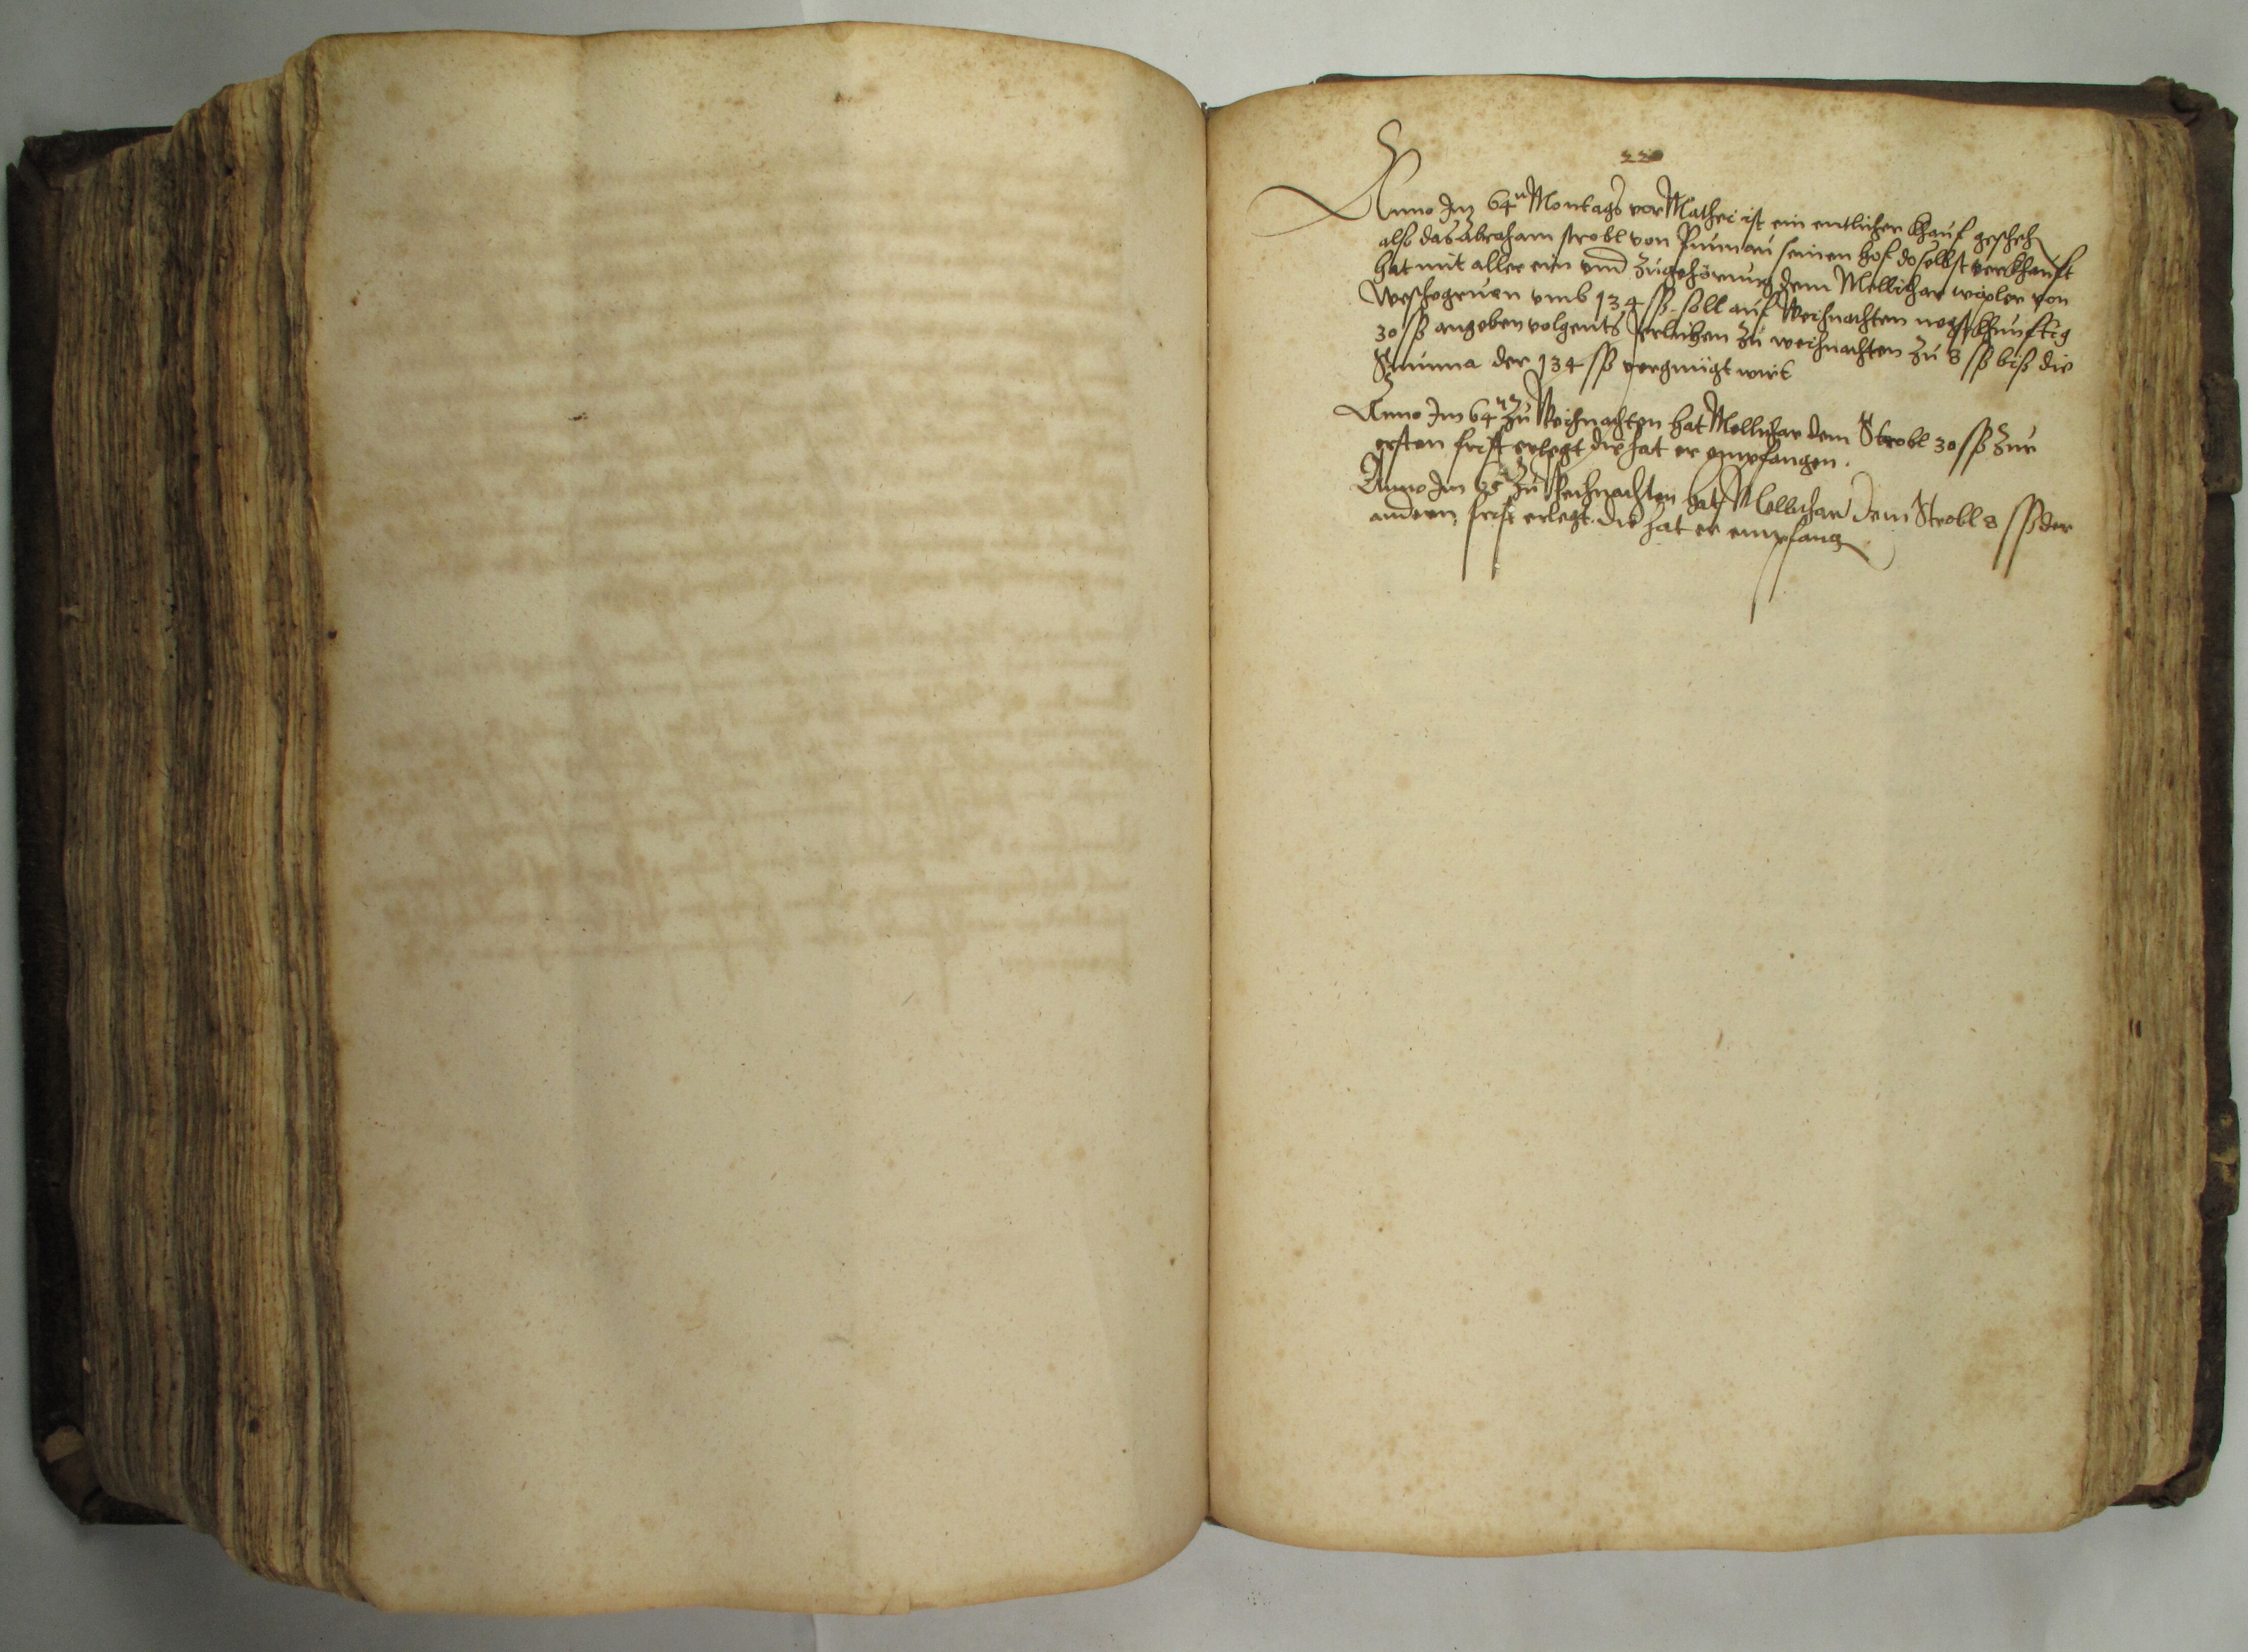 220
Anno Im 64n Montags vor Mathei ist ein entlicher khauf gescheh
also das Abraham strobl von seinen hof doselbst verkhauft
hat mit aller ein vnd zugehörnung dem Mellichar wixler von
Weschegruen vmb 134 ß. soll auf Weihnachten negstkhunftig
30 ß angeben volgents Jerlichen zu weihnachten zu 8 ß biß die
Summa der 134 ß vergnügt wirt
Anno Im 64n Zu Weihnachten hat Mellichar dem Strobl 30 ß zur
ersten frist erlegt die hat er empfangen.
Anno Im 65 Zu Weihnachten hat Mellichar dem Strobl 8 ß der
andern frist erlegt. die hat er empfang